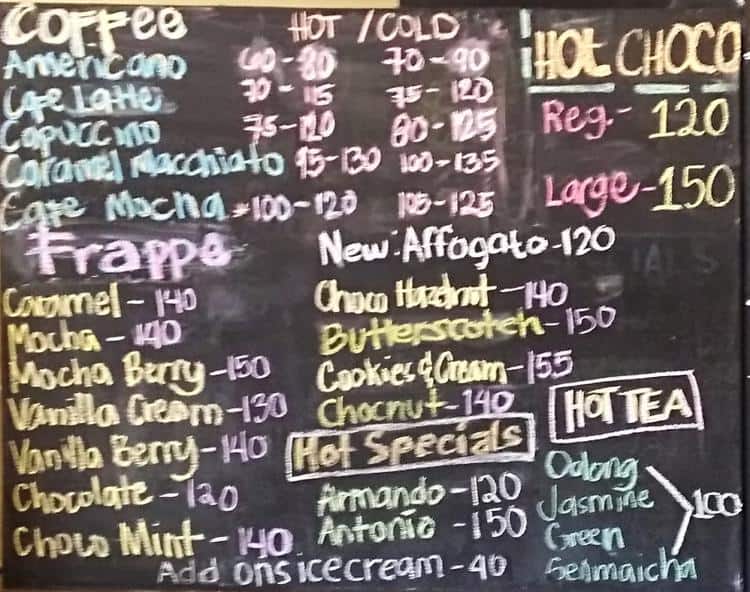 Coffee HOT / COLD
Americano 60-80 70-90
Cafe Latte 70-115 75-120
Capuccino 75-120 80-125
Caramel Macchiato 95-130 100-135
Cafe Mocha 100-120 105-125
HOt CHOCO
Reg.- 120
Large-150
Frappe
Caramel - 140
Mocha - 140
Mocha Berry -150
Vanilla Cream -130
Vanilla Berry - 140
Chocolate - 120
Choco Mint - 140
New: Affogato -120
Choco Hazelnut -140
Butterscotch -150
Cookies & Cream -155
Chocnut -140
Hot Specials
Armando -120
Antonio -150
Add ons icecream - 40
HOT TEA
Oolong
Jasmine
Green
Genmaicha
100